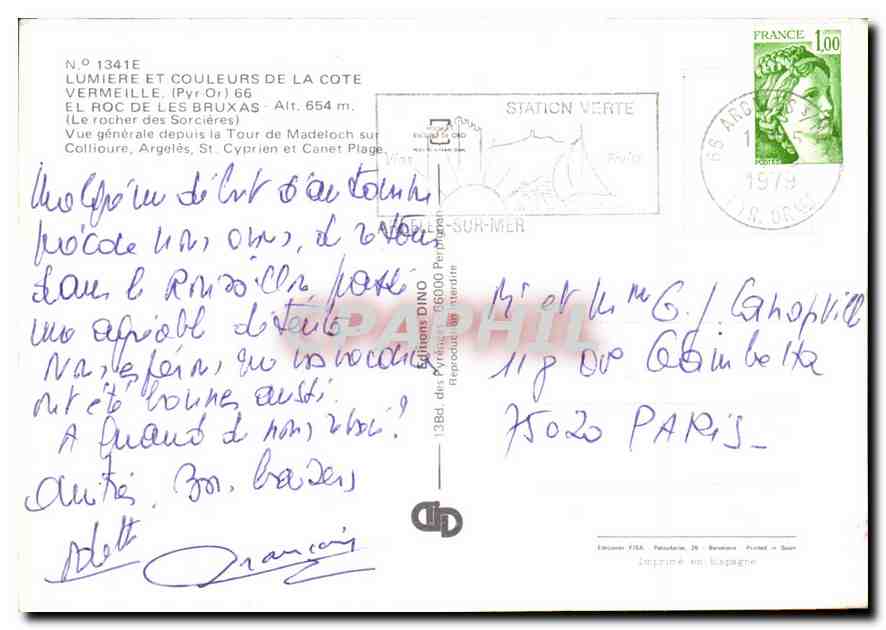 N.º 1341E
LUMIERE ET COULEURS DE LA COTE
VERMEILLE. (Pyr-Or) 66
EL ROC DE LES BRUXAS - Alt. 654 m.
(Le rocher des Sorcières)
Vue générale depuis la Tour de Madeloch sur
Collioure, Argelés, St. Cyprien et Canet Plage
début d'automne
nous avons,
dans le Roussillon passé
une agréable détente
Nous espérons que vos vacances
ont été bonnes aussi.
A quand de nous revoir?
Amitiés, Bons baisers
Odette
François
STATION VERTE
Vins
Fruits
ARGELES-SUR-MER
66 ARGELES S
1979
FRANCE
1,00
POSTES
Editions DINO
13Bd. des Pyrénées - 66000 Perpignan
Reproduction Interdite
CPAPHIL
Mr et Mme G.
119 av Gambetta
75020 PARIS
Imprimé en Espagne